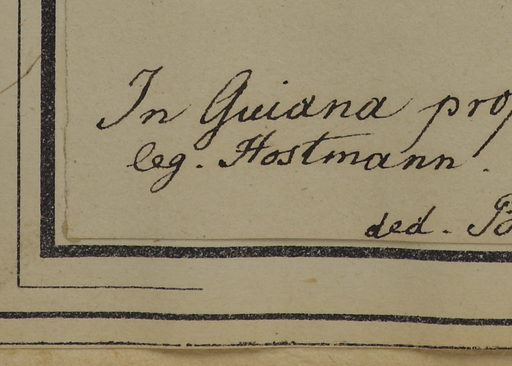 In Guiana prop
leg. Hostmann.
ded.